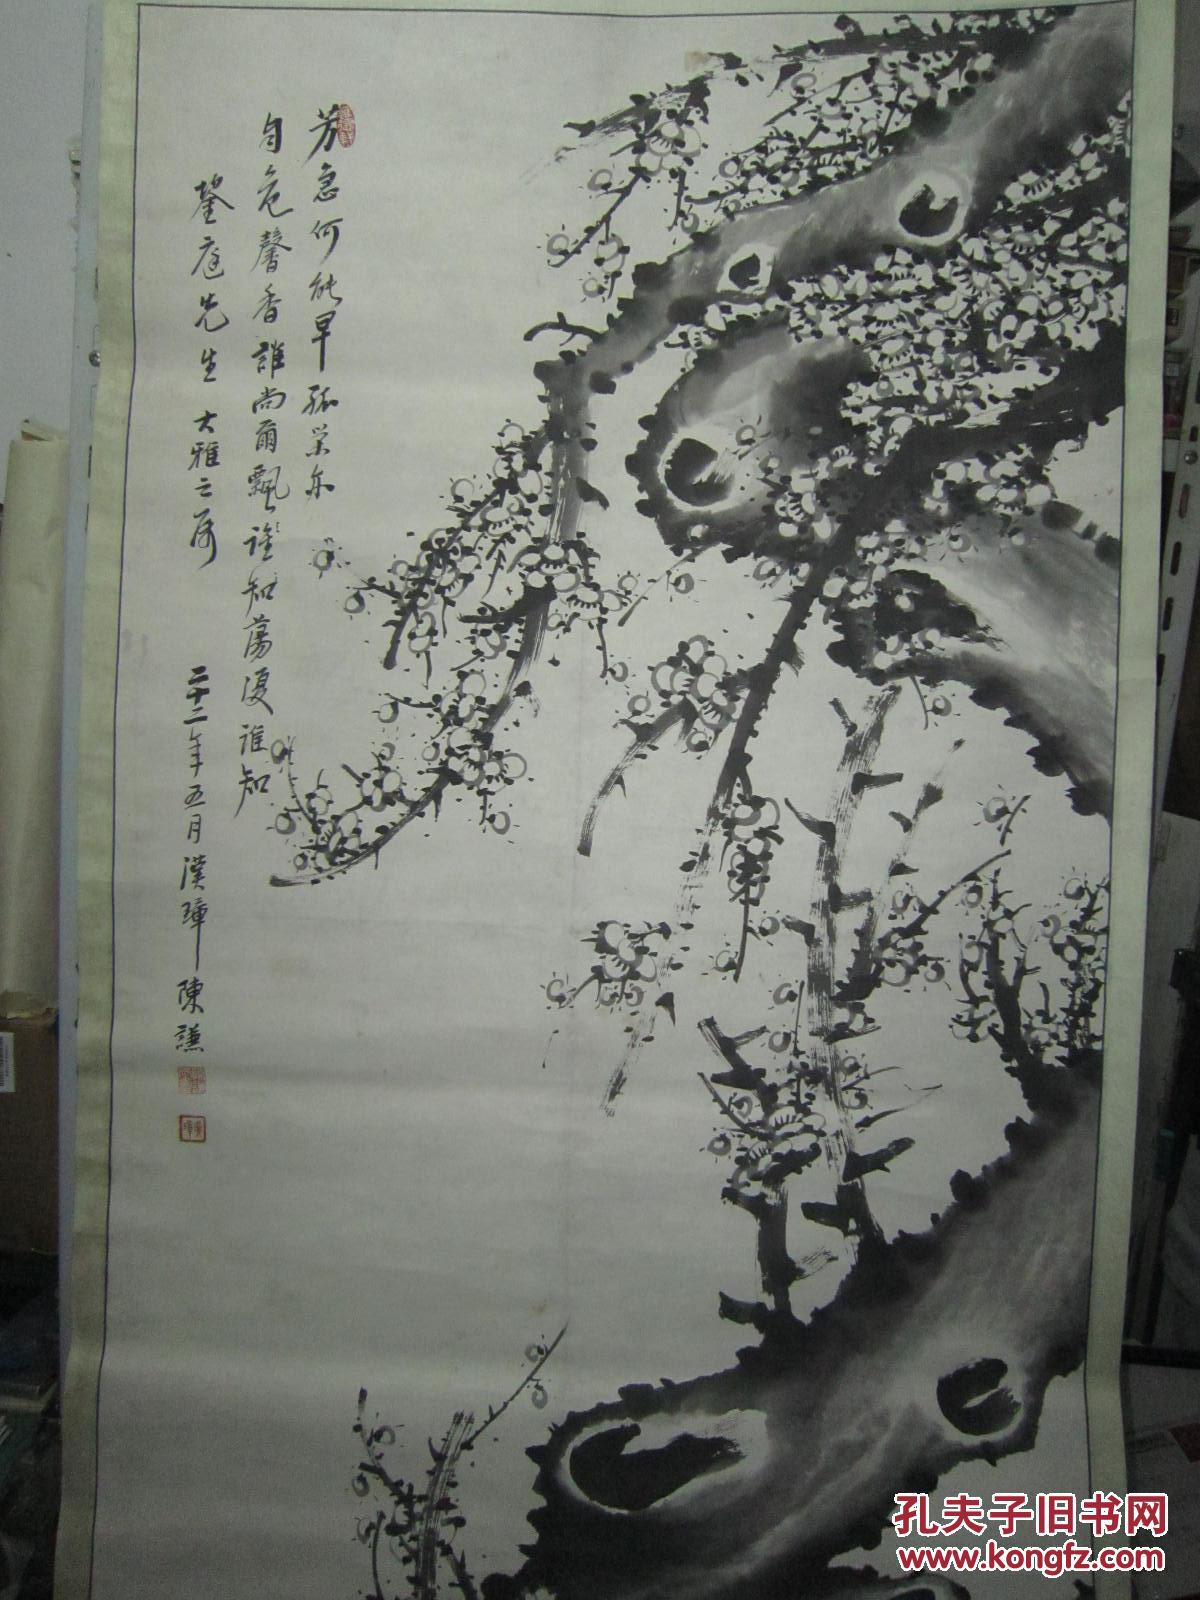 芳意何能早孤榮亦
自危馨香誰尚爾飄誰知蕩復誰知
鋆庭先生大雅之屬
二十二年五月漢璋陳謙
孔夫子旧书网
www.kongfz.com